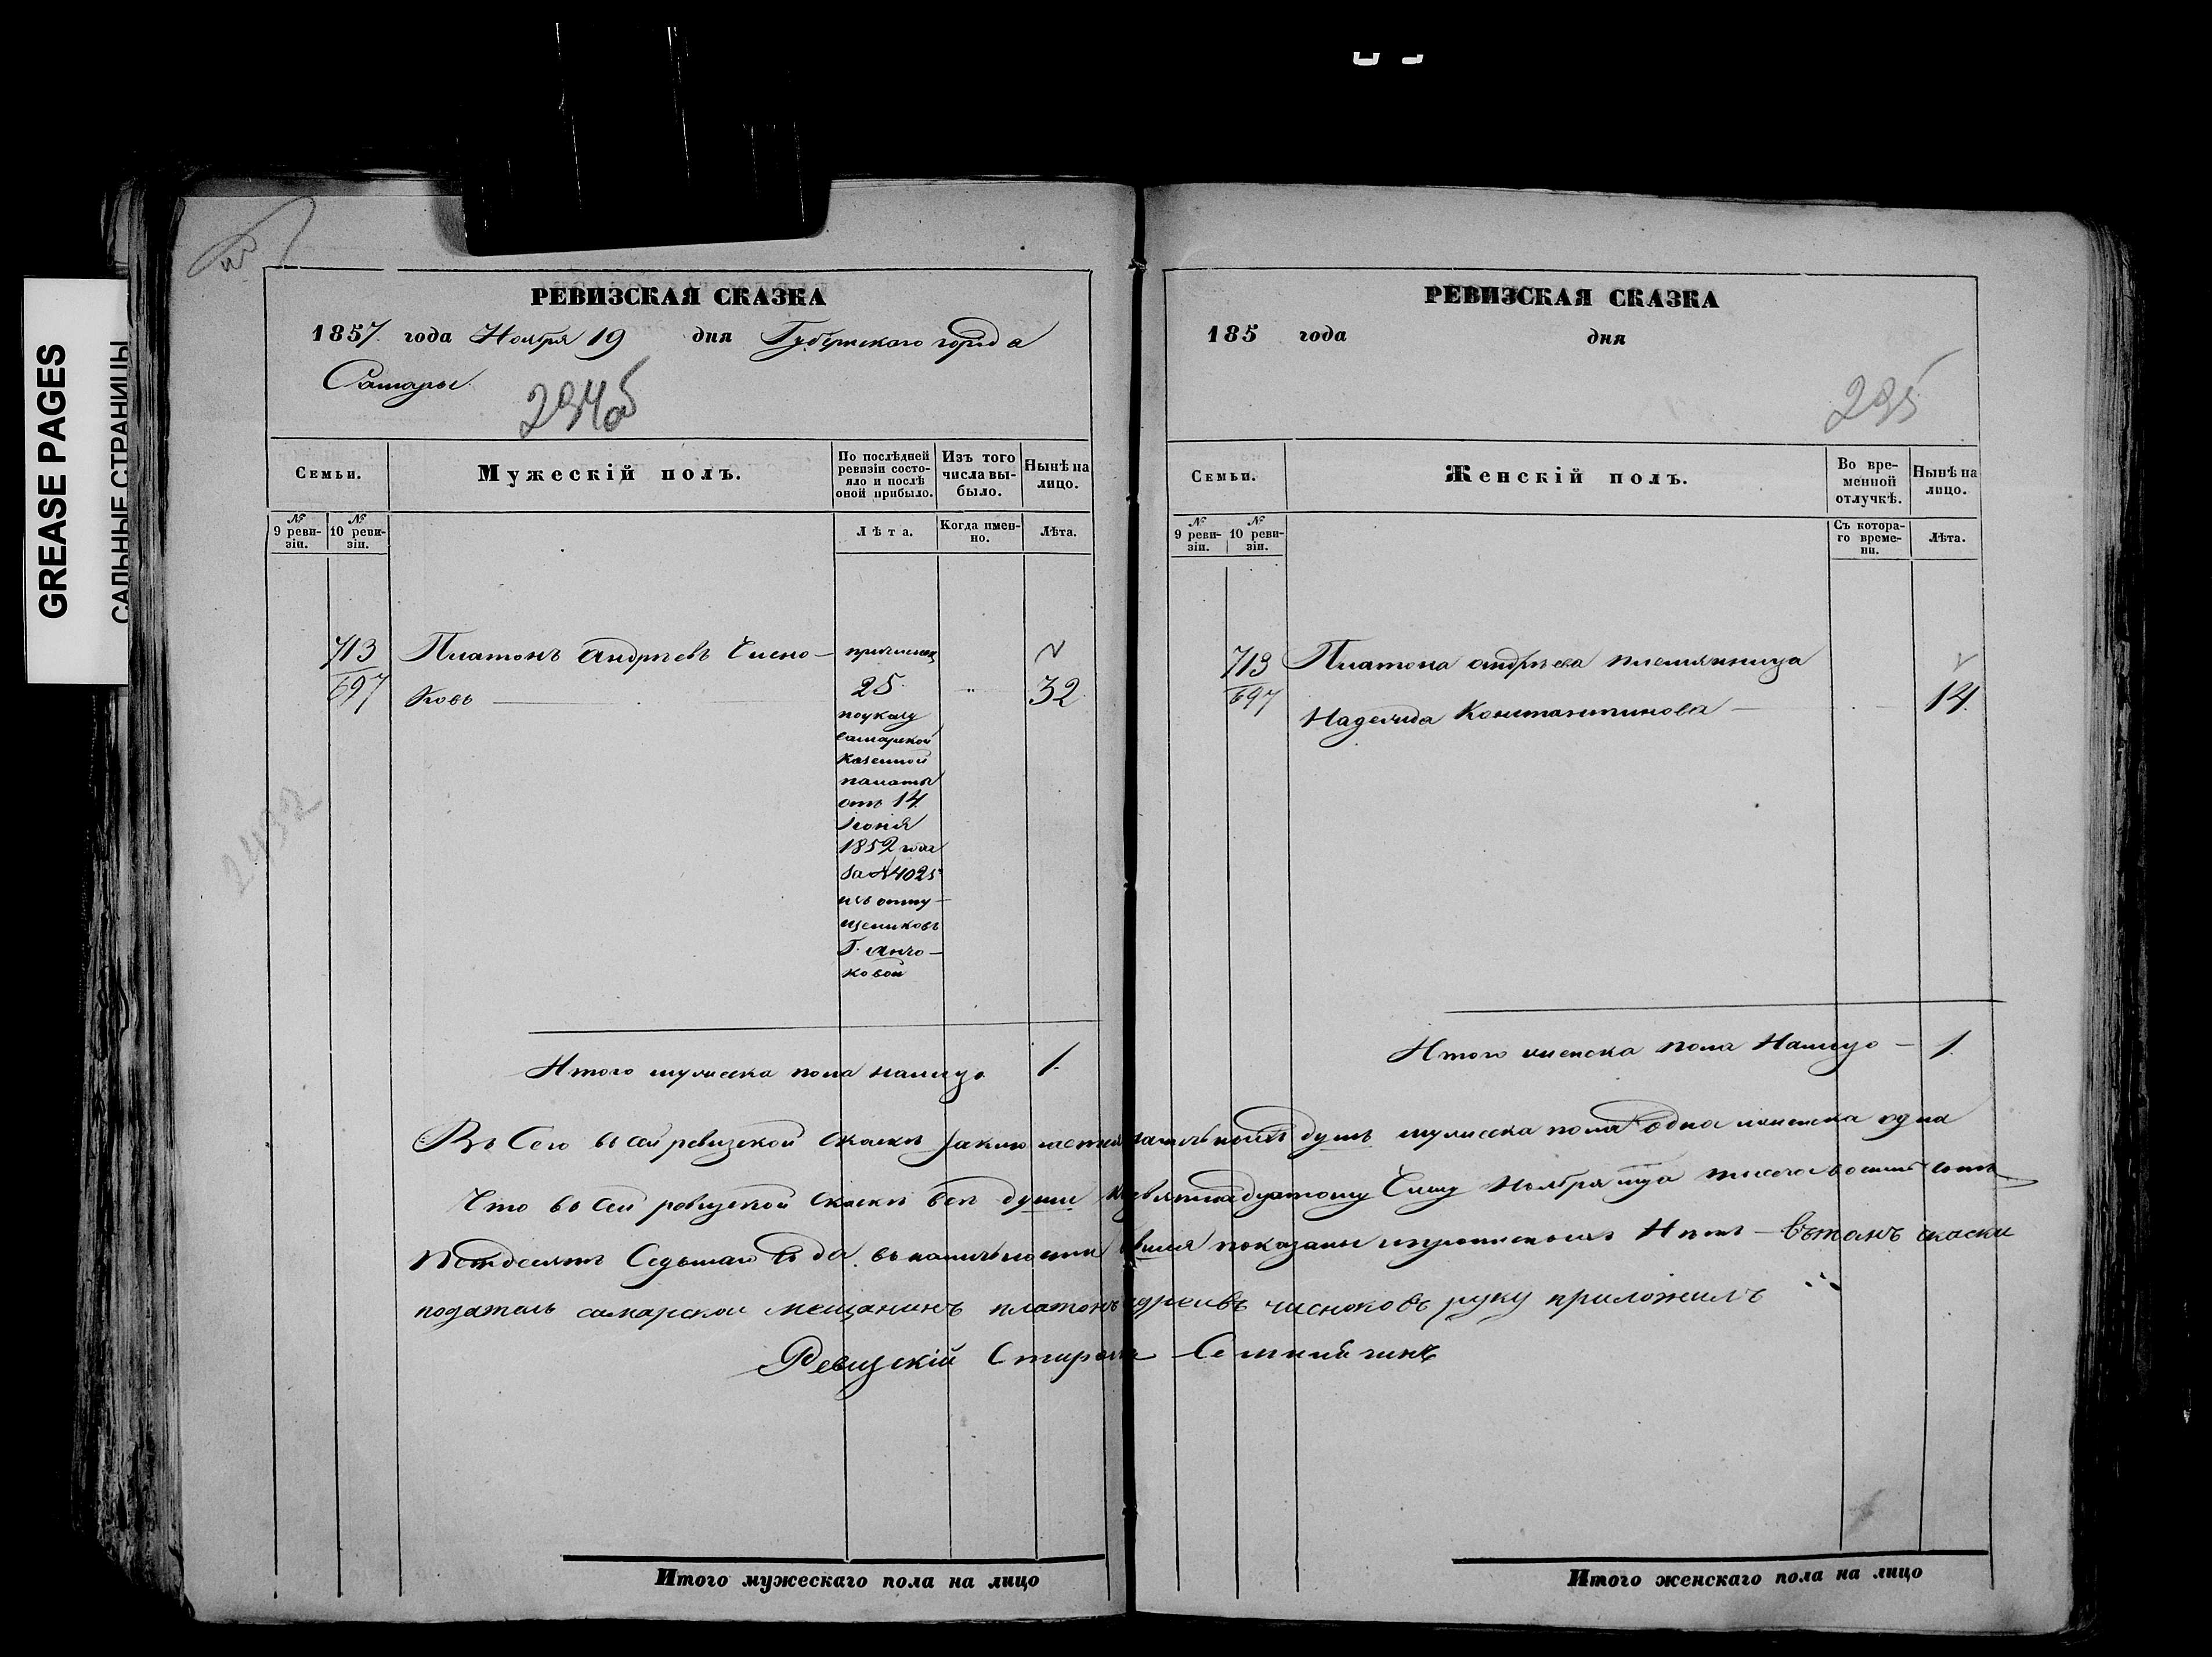 GREASE PAGES
САЛЬНЫЕ СТРАНИЦЫ
РЕВИЗСКАЯ СКАЗКА
1857. года Ноября 19 дня Губернскаго города
Самары.
294об
Семьи.
Мужескій полъ.
По послѣдней ревизіи состояло и послѣ оной прибыло.
Изъ того числа выбыло.
Нынѣ на лицо.
№ 9 ревизіи.
№ 10 ревизіи.
Лѣта.
Когда именно.
Лѣта.
713
697
Платонъ Андрѣевъ Чесно-
ковъ
причислен
25.
32.
поуказу
самарской
казенной
палаты
отъ 14
Іюня
1852 года
за №4025
изъ отпу-
щениковъ
Г.
ковой
2432
Итого мужеска пола налицо 1.
РЕВИЗСКАЯ СКАЗКА
185 года дня
295
Семьи.
Женскій полъ.
Во временной отлучкѣ.
Нынѣ на лицо.
№ 9 ревизіи.
№ 10 ревизіи.
Съ котораго времени.
Лѣта.
713
697
Платона андрѣева племянница
Надежда Константинова — 14.
Итого женска пола Налицо — 1.
Въ сей ревизской скаскѣ душъ мужеска пола одна женска одна
Что въ сей ревизской скаскѣ всѣ души Ноября
Седьмаго года. въ наличности показаны и Нѣтъ — вътомъ скаски
податель самарскои мещанинъ платонъ чесноковъ руку приложилъ
Ревизскій Староста
Итого мужескаго пола на лицо
Итого женскаго пола на лицо